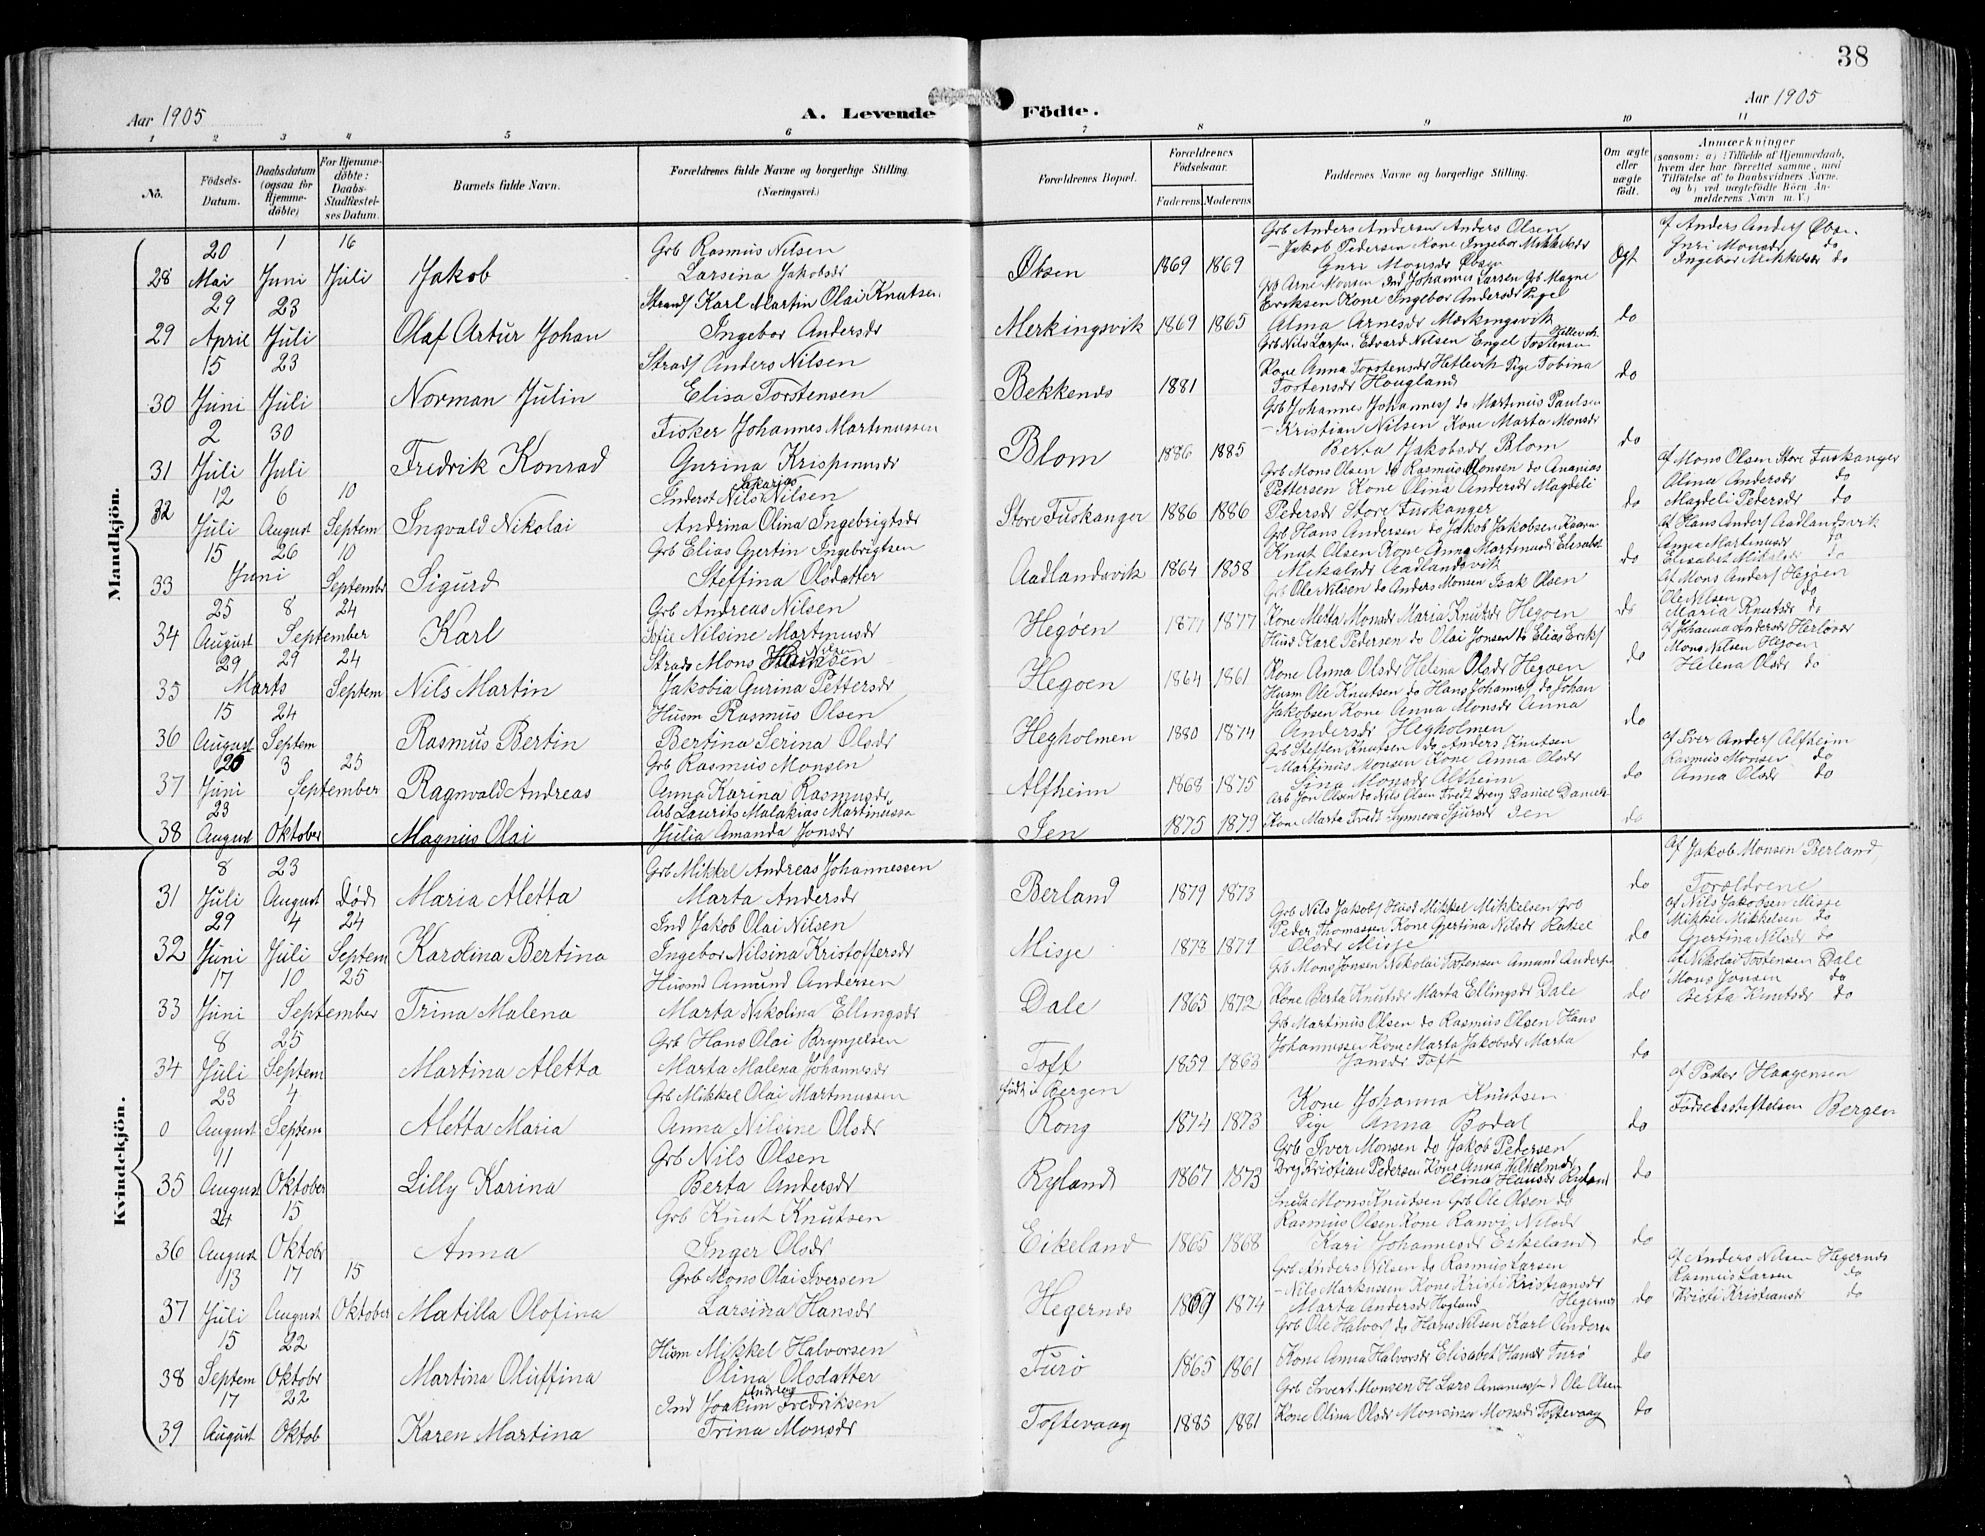 38
Aar 1905
A. Levende Födte.
Aar 1905
1 2 3 4 5 6 7 8 9 10 11
No.
Födsels-Datum.
Daabsdatum (ogsaa for Hjemmedöbte)
For Hjemmedöbte: Daabs-Stadfæstelses Datum.
Barnets fulde Navn.
Forældrenes fulde Navne og borgerlige Stilling. (Næringsvei.)
Forældrenes Bopæl.
Forældrenes Födselsaar.
Faderens Moderens
Faddernes Navne og borgerlige Stilling.
Om ægte eller uægte födt.
Anmærkninger
(saasom: a) i Tilfælde af Hjemmedaab, hvem der har forrettet samme, med Tilföielse af to Daabsvidners Navne, og b) ved uægtefödte Börn Anmelderens Navn m. V.)
Mandkjön.
28 20 Mai 1 Juni 16 Juli Jakob
Grb Rasmus Nilsen
Larsina Jakobsdr
Øksen 1869 1869
Grb Anders Andersen Anders Olsen
Jakob Pedersen Kone Ingebor Mikkelsdr
Guri Monsdr Øksen
Ogt
Guri Monsdr do
Ingebor Mikkelsdr do
29 29 April 23 Juli Olaf Artur Johan
Strands Karl Martin Olai Knutsen
Ingebor Andersdr
Merkingsvik 1869 1865
Grb Arne Monsen Ind Johannes Larsen Grb Magne
Eriksen Kone Ingebor Andersdr Pige
Alma Arnesdr Mærkingsvik
do
30 15 Juni 23 Juli Norman Julin
Strads Anders Nilsen
Elisa Torstensen
Bekkenes 1881
Grb Nils Larsen. Edvard Nilsen Engel Torstensen
Kone Anna Torstensdr Hetlevik Pige Tobina
Tostensdr Hougland
do
31 2 Juli 30 Juli Fredrik Konrad
Fisker Johannes Martinussen
Gurina Krispinusdr
Blom 1886 1885
Grb Johannes Johannes do Martinus Paulsen
Kristian Nilsen Kone Marta Monsdr
Berta Jakobsdr Blom
do
32 12 Juli 6 August 10 Septem Ingvald Nikolai
Inderst Nils Sakarias Nilsen
Andrina Olina Ingebrigtsdr
Store Tuskanger 1886 1886
Grb Mons Olsen do Rasmus Monsen do Ananias
Pettersen Kone Olina Andersdr Magdeli
Pedersdr Store Tuskanger
do
af Mons Olsen Store Tuskanger
Alina Andersdr do
Magdeli Pedersdr do
33 15 Juni 26 10 September Sigurd
Grb Elias Gjertin Ingebrigtsen
Steffina Olsdatter
Aadlandsvik 1864 1858
Grb Hans Andersen do Jakob Jakobsen
Knut Olsen Kone Anna Martinusdr Elisabet
Mikalsdr Aadlandsvik
do
af Hans Anders Aadlandsvik
Anna Martinusdr do
Elisabet Mikalsdr do
34 25 August 8 September 24 Karl
Grb Andreas Nilsen
Sofie Nilsine Martinusdr
Hegøen 1871 1877
Grb Ole Nilsen do Anders Monsen Isak Olsen
Kone Metta Monsdr Maria Knutsdr Hegoen
do
af Mons Anders Hegøen
Ole Nilsen do
Maria Knutsdr do
35 29 Marts 29 24 Septem Nils Martin
Strads Mons Nilsen
Jakobia Gurina Pettersdr
Hegoen 1864 1861
Husd Karl Pedersen do Olai Jonsen do Elias Eriks
Kone Anna Olsdr Helena Olsdr Hegoen
do
af Johanna Andersdr Herløvær
Mons Nilsen Hegoen
Helena Olsdr do
36 15 August 24 Septem Rasmus Bertin
Husm Rasmus Olsen
Bertina Serina Olsdr
Hegholmen 1880 1874
Husm Ole Knutsen do Hans Johannes do Johan
Jakobsen Kone Anna Monsdr Anna
Andersdr Hegholmen
do
37 26 Juni 3 September 25 Ragnvald Andreas
Grb Rasmus Monsen
Anna Karina Rasmusdr
Alfheim 1868 1875
Grb Steffen Knutsen do Anders Knutsen
Martinus Monsen Kone Anna Olsdr
Sina Monsdr Alfheim
do
af Iver Anders Alfheim
Rasmus Monsen do
Anna Olsdr do
38 23 August 1 Oktober Magnus Olai
Arb Laurits Malakias Martinussen
Julia Amanda Jonsdr
Ien 1875 1879
Arb Jon Olsen do Nils Olsen Tvedt Dreng Daniel Daniels
Kone Marta Tvedt Synneva Sjursdr Ien
do
Kvindekjön.
31 8 Juli 23 August Død Maria Aletta
Grb Mikkel Andreas Johannessen
Marta Andersdr
Berland 1879 1873
do
af Jakob Monsen Berland,
Foraldrene
32 29 Juni 4 Juli 24 Septem Karolina Bertina
Ind Jakob Olai Nilsen
Ingebor Nilsina Kristoffersdr
Misje 1878 1879
Grb Nils Jakobs Husd Mikkel Mikkelsen Grb
Peder Thomassen Kone Gjertina Nilsdr Rakel
Olsdr Misje
do
af Nils Jakobsen Misje
Mikkel Mikkelsen do
Gjertina Nilsdr do
33 17 Juni 10 September 25 Trina Malena
Husmd Amund Andersen
Marta Nikolina Ellingsdr
Dale 1865 1872
Grb Mons Jonsen Nikolai Tostensen Amund Andersen
Kone Berta Knutsdr Marta Ellingsdr Dale
do
af Nikolai Tostensen Dale
Mons Jonsen do
Berta Knutsdr do
34 8 Juli 25 Septem Martina Aletta
Grb Hans Olai Brynjelsen
Marta Malena Johannesdr
Toft 1859 1863
Grb Martinus Olsen do Rasmus Olsen Hans
Johannessen Kone Marta Jakobsdr Marta
Jansdr Toft
do
0 23 August 4 Septem Aletta Maria
Grb Mikkel Olai Martinussen
Anna Nilsine Olsdr
Født i Bergen
Rong 1874 1873
Kone Johanna Knutsen
Pige Anna Bodal
do
af Pastor Haagensen
Fødselsstiftelsen Bergen
35 11 August Oktober Lilly Karina
Grb Nils Olsen
Berta Andersdr
Ryland 1867 1873
Grb Iver Monsen do Jakob Pedersen
Drg Kristian Pedersen Kone Anna Vilhelmsdr
Olina Hansdr Ryland
do
36 24 August 15 Oktobr Anna
Grb Knut Knutsen
Inger Olsdr
Eikeland 1865 1868
Smed Mons Knutsen Grb Ole Olsen do
Rasmus Olsen Kone Ranvi Nilsdr
Kari Johannesdr Eikeland
do
37 13 Juli 17 August 15 Oktober Matilla Olofina
Grb Mons Olai Iversen
Larsina Hansdr
Hegernes 1869 1874
Grb Anders Nilsen do Rasmus Larsen
Nils Markussen Kone Kristi Kristiansdr
Marta Andersdr Hegland Hegernes
do
af Anders Nilsen Hegernes
Rasmus Larsen do
Kristi Kristiansdr do
38 15 Septem 22 Oktobr Martina Oluffina
Husm Mikkel Halvorsen
Olina Olsdatter
Turø 1865 1861
Grb Ole Halvors do Hans Nilsen Karl Andersen
Kone Anna Halvorsdr Elisabet Hansdr Turø
do
39 17 August 22 Oktob Karen Martina
Ind Joakim Andreas Fredriksen
Trina Monsdr
Toftevaag 1885 1881
Grb Sivert Monsen H Lars Ananiassen d Ole Olsen
Kone Olina Olsdr Monsina Monsdr Toftevaag
do